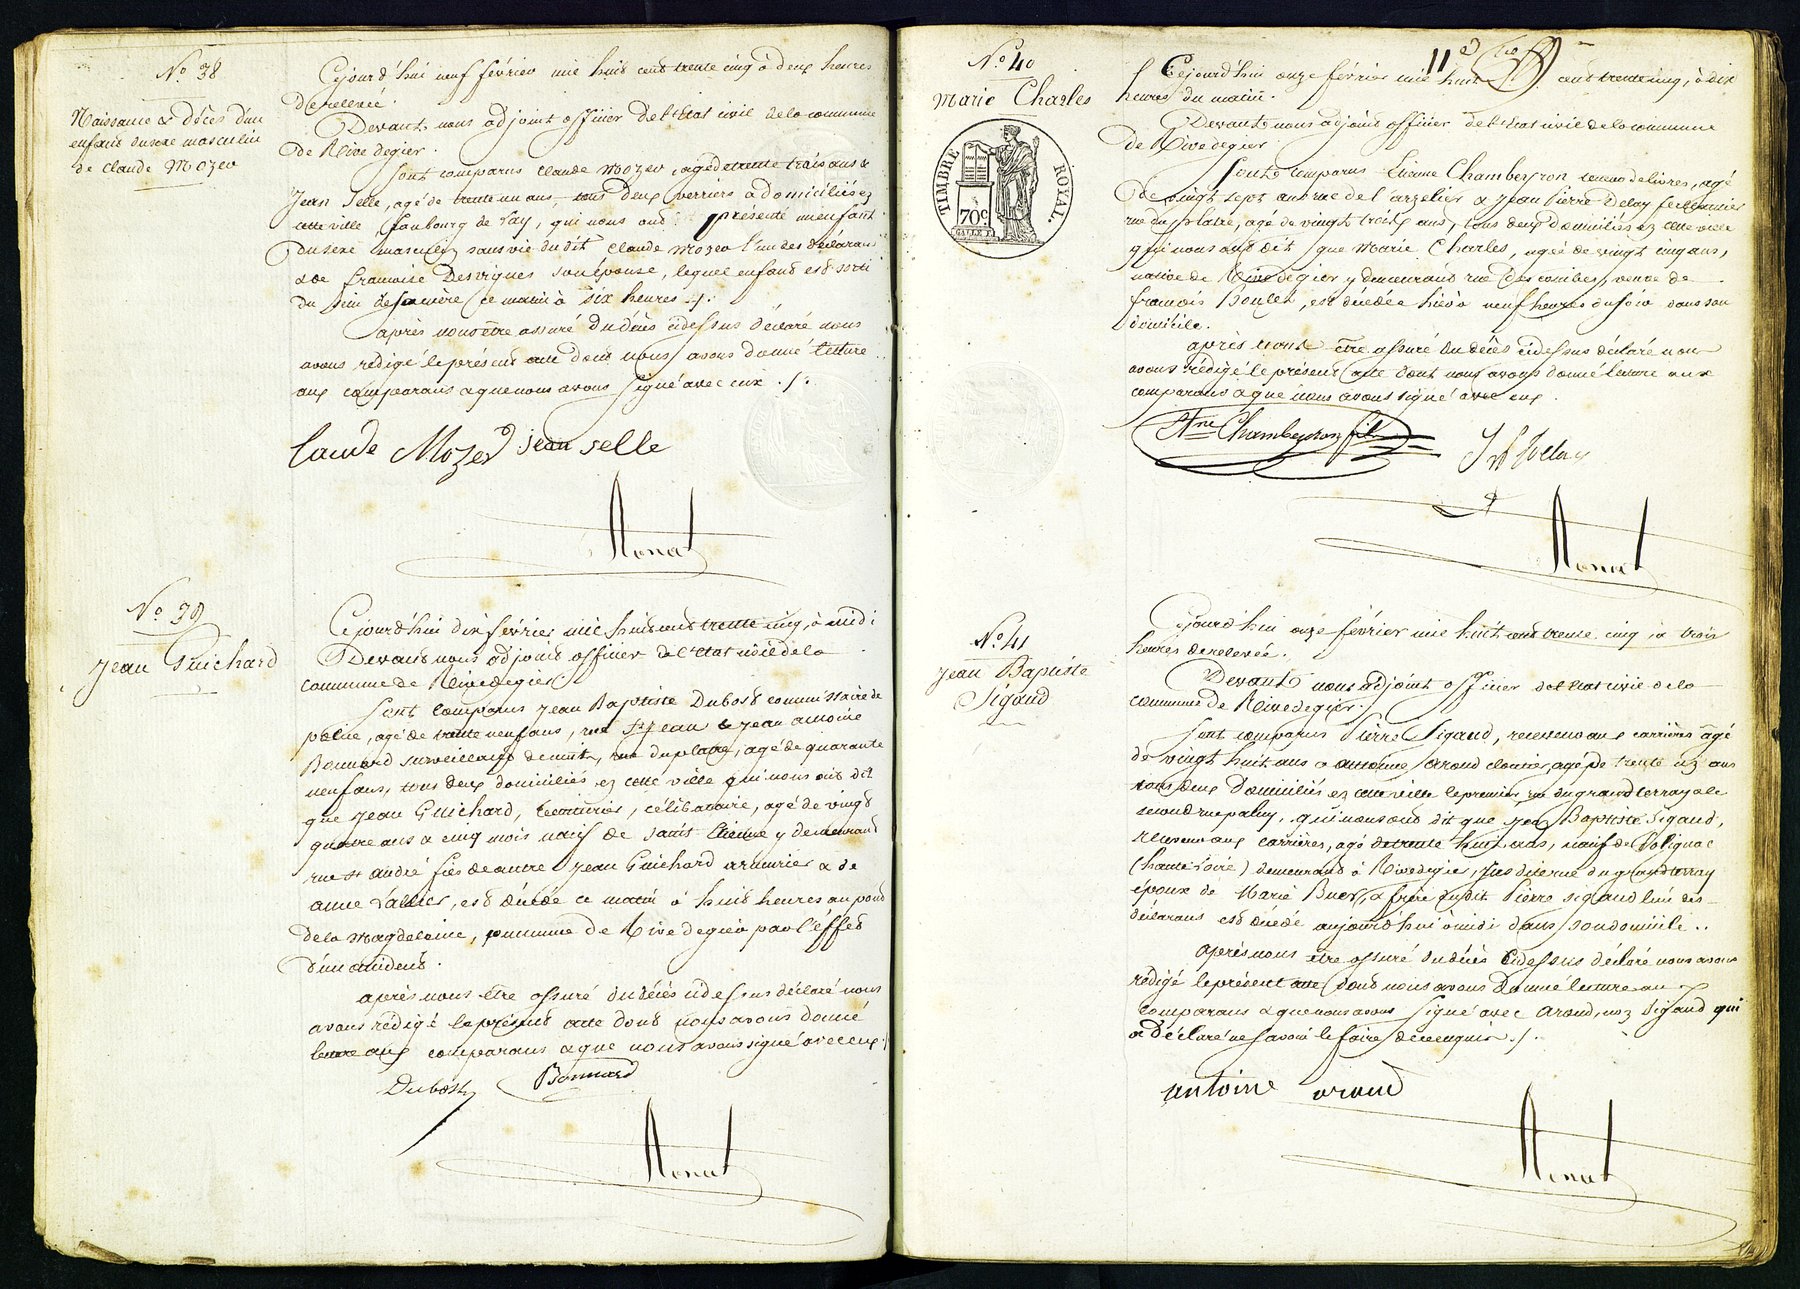 N.º 38
Naissance & décès d'un
enfant du sexe masculin
de Claude Mozer
Cejourd'hui neuf février mil huit cent trente cinq à deux heures
de relevée.
Devant nous adjoint officier de l'état civil de la commune
de Rive de gier.
Sont comparus Claude Mozer, agé de trente trois ans &
Jean Selle, agé de trente un ans, tous deux verriers & domiciliés en
cette ville, faubourg de Lay, qui nous ont présenté un enfant
du sexe masculin sans vie du dit Claude Mozer l'un des déclarans
& de françoise Desvignes son épouse, lequel enfant est sorti
du sein de sa mère ce matin à six heures ./.
après nous être assuré du décès cidessus déclaré nous
avons rédigé le présent acte dont nous avons donné lecture
aux comparans & que nous avons signé avec eux ./.
Claude Mozer jean selle
Monat
N.º 39
Jean Guichard
Cejourd'hui dix février mil huit cent trente cinq, à midi
Devant nous adjoint officier de l'état civil de la
commune de Rive de gier
Sont comparus Jean Baptiste Dubost commissaire de
police, agé de trente neuf ans, rue St Jean & Jean antoine
Bonnard surveillant de nuit, rue du platre, agé de quarante
neuf ans, tous deux domiciliés en cette ville qui nous ont dit
que Jean Guichard, célibataire, agé de vingt
quatre ans & cinq mois natif de saint Etienne y demeurant
rue st andré fils de autre Jean Guichard armurier & de
anne Lallier, est décédé ce matin à huit heures au pont
de la Magdeleine, commune de Rive de gier par l'effet
d'un accident.
après nous être assuré du décès cidessus déclaré nous
avons rédigé le présent acte dont nous avons donné
lecture aux comparans & que nous avons signé avec eux ./.
Dubost Bonnard
Monat
N.º 40
Marie Charles
TIMBRE ROYAL.
70c
11e
Cejourd'hui onze février mil huit cent trente cinq, à dix
heures du matin.
Devant nous adjoint officier de l'état civil de la commune
de Rive de gier
Sont comparus Etienne Chambeyron teneur de livres, agé
de vingt sept ans rue de l'argelier & Jean Pierre Delay ferblantier
rue du platre, agé de vingt trois ans, tous deux domiciliés en cette ville
qui nous ont dit que Marie Charles, agée de vingt cinq ans,
native de Rive de gier y demeurant rue des combes, veuve de
françois Boulet, est décédée hier à neuf heures du soir dans son
domicile.
après nous être assuré du décès cidessus déclaré nous
avons rédigé le présent acte dont nous avons donné lecture aux
comparans & que nous avons signé avec eux.
Etne Chambeyron fils
Monat
N.º 41
Jean Baptiste
Sigaud
Cejourd'hui onze février mil huit cent trente cinq à trois
heures de relevée.
Devant nous adjoint officier de l'état civil de la
commune de Rive de gier.
Sont comparus Pierre Sigaud, receveur aux carrières agé
de vingt huit ans & antoine Araud cloutier, agé de trente six ans
tous deux domiciliés en cette ville le premier, rue du grand terray & le
second rue paluy, qui nous ont dit que Jean Baptiste Sigaud,
receveur aux carrières, agé de trente huit ans, natif de Polignac
(haute Loire) demeurant à Rive de gier, susdite rue du grand terray
époux de Marie Buer, & frère du dit Pierre Sigaud l'un des
déclarans est décédé aujourd'hui à midi dans son domicile ..
après nous être assuré du décès cidessus déclaré nous avons
rédigé le présent acte dont nous avons donné lecture aux
comparans & que nous avons signé avec Araud, non Sigaud qui
a déclaré ne savoir le faire de ce enquis ./.
antoine araud
Monat